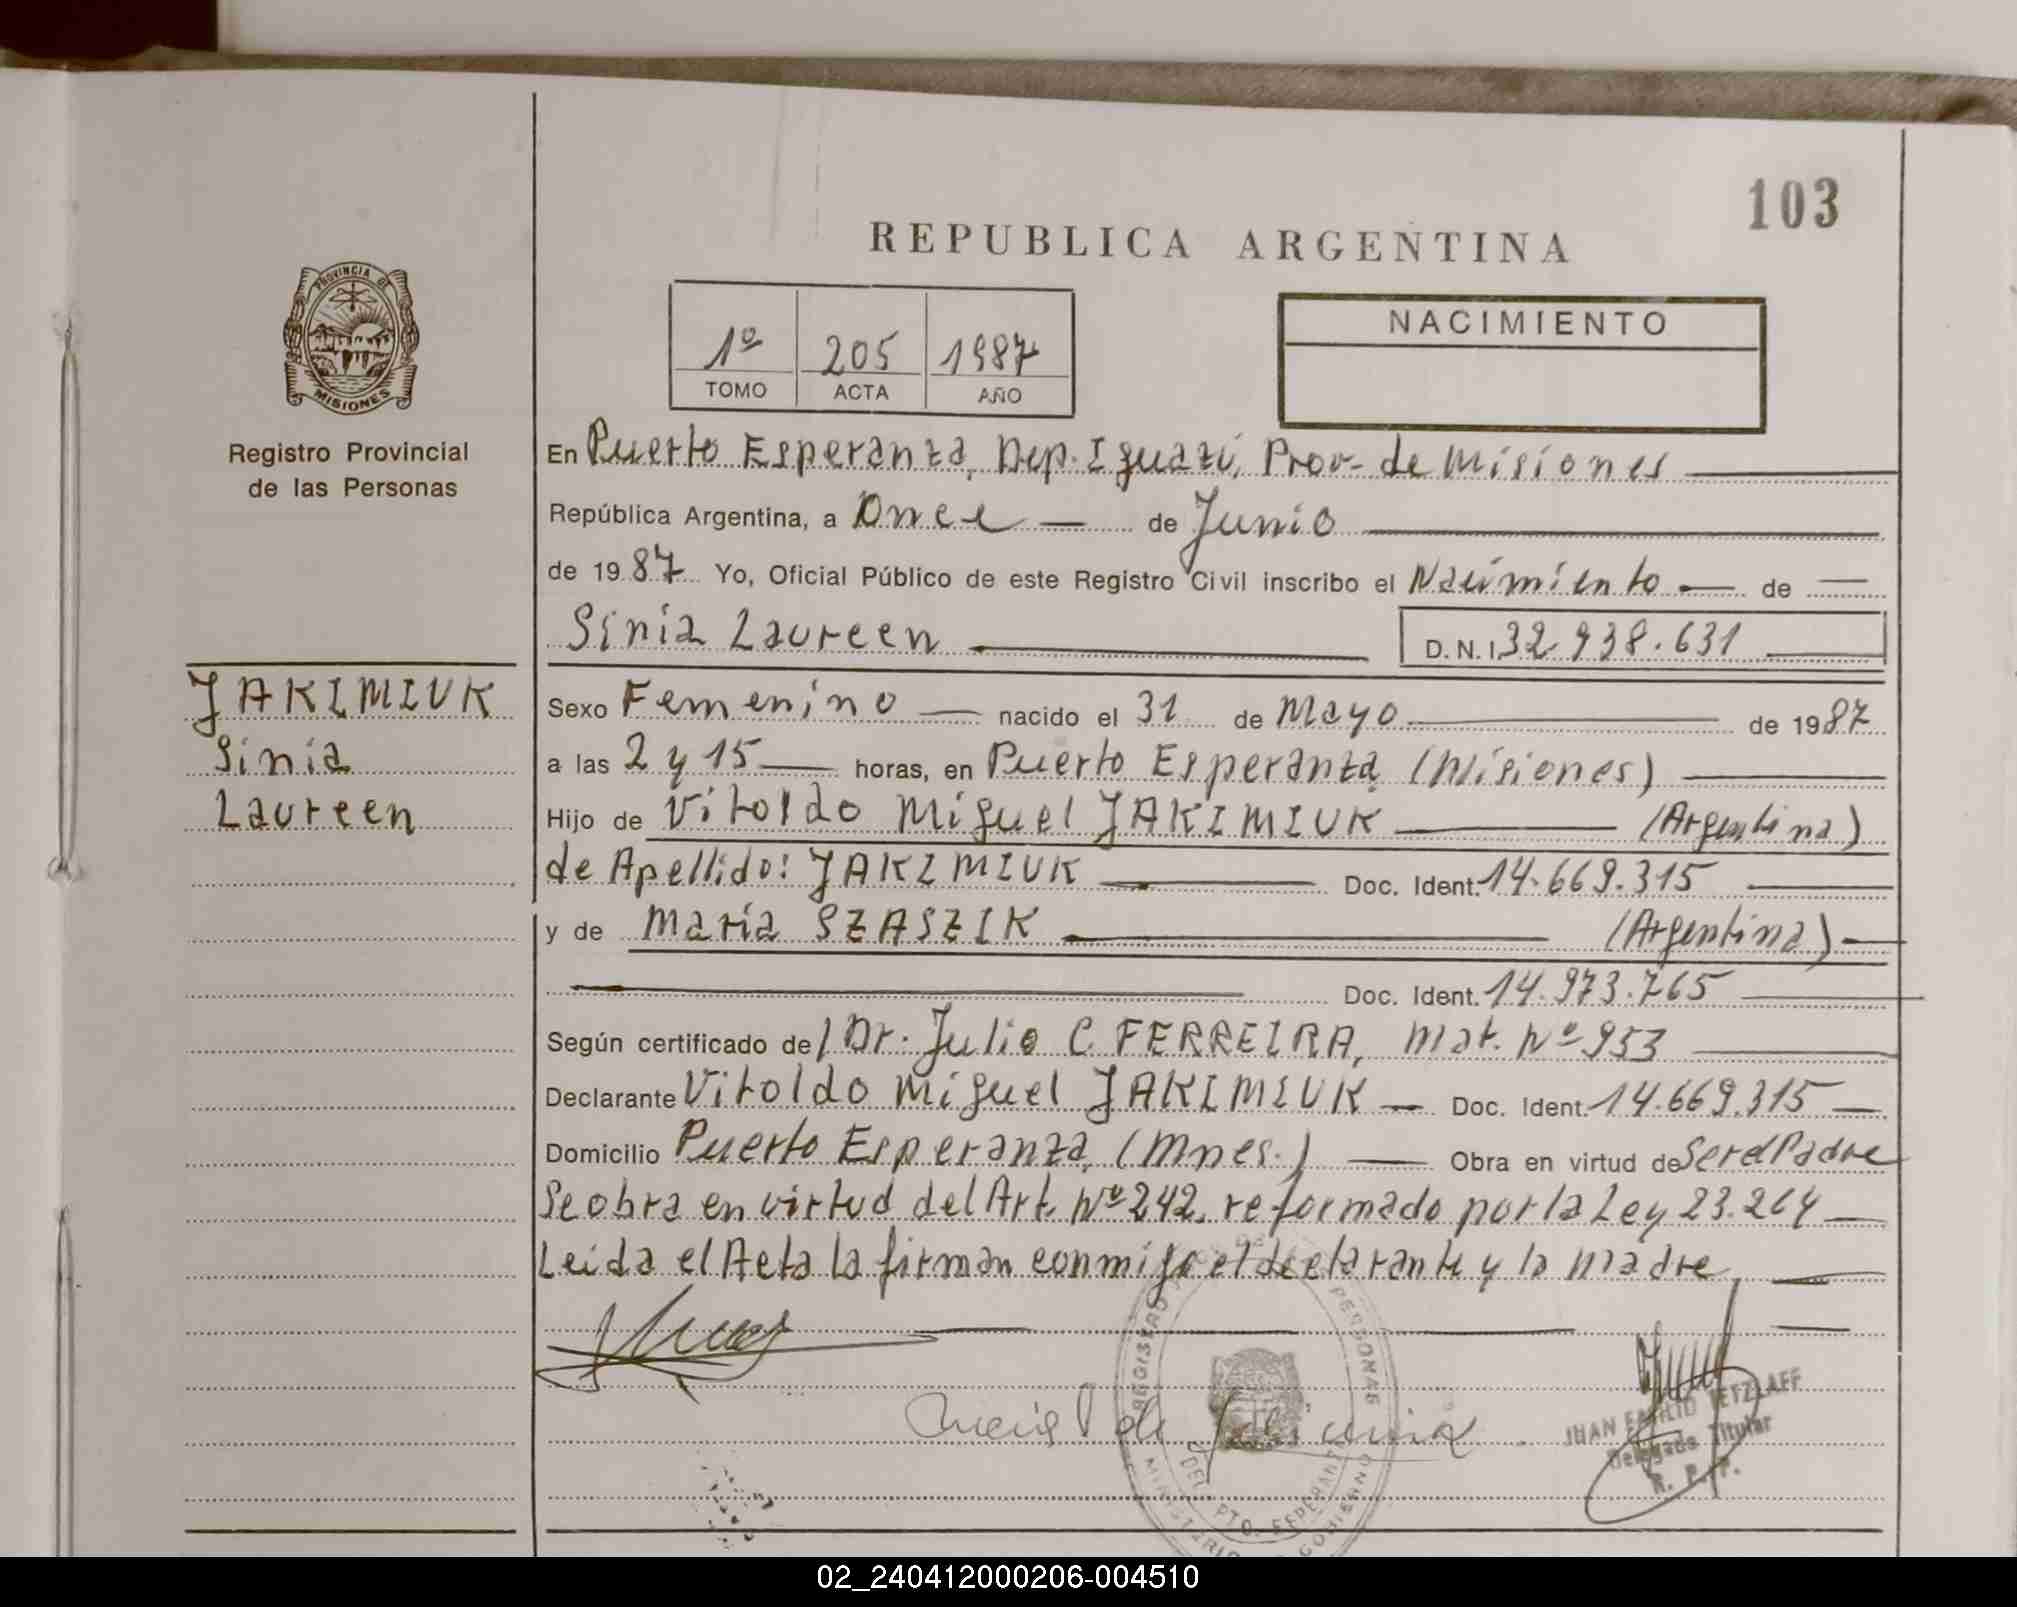 103
REPUBLICA ARGENTINA
PROVINCIA DE
MISIONES
Registro Provincial
de las Personas
1º 205 1987
TOMO ACTA AÑO
NACIMIENTO
En Puerto Esperanza, Dep. Iguazú, Prov. de Misiones
República Argentina, a Once de Junio
de 1987 Yo, Oficial Público de este Registro Civil inscribo el Nacimiento de
Sinia Laureen D.N.I. 32.938.631
JAKIMIUK
Sinia
Laureen
Sexo Femenino nacido el 31 de Mayo de 1987
a las 2 y 15 horas, en Puerto Esperanza (Misiones)
Hijo de Vitoldo Miguel JAKIMIUK (Argentina)
de Apellido: JAKIMIUK Doc. Ident. 14.669.315
y de María SZASZIK (Argentina)
Doc. Ident. 14.973.765
Según certificado de / Dr. Julio C. FERREIRA, Mat. Nº 953
Declarante Vitoldo Miguel JAKIMIUK Doc. Ident. 14.669.315
Domicilio Puerto Esperanza, (Mnes.) Obra en virtud de Ser el Padre
Se obra en virtud del Art. Nº 242, reformado por la Ley 23.264
Leida el Acta la firman conmigo el declarante y la madre
REGISTRO PERSONAS
DEL. PTO. ESPERANZA
MINISTERIO GOBIERNO
JUAN EMILIO TETZLAFF
Delegado Titular
R. P. P.
02_240412000206-004510